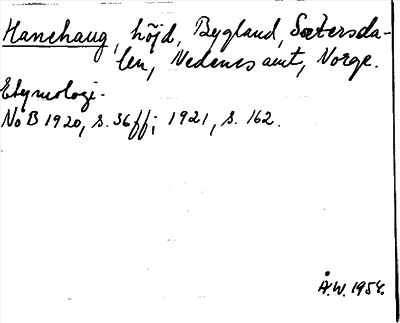 Hanehaug, höjd, Bygland, Sætersda-
len, Nedenes amt, Norge.
Etymologi.
NoB 1920, s. 36ff; 1921, s. 162.
Å.W. 1954.